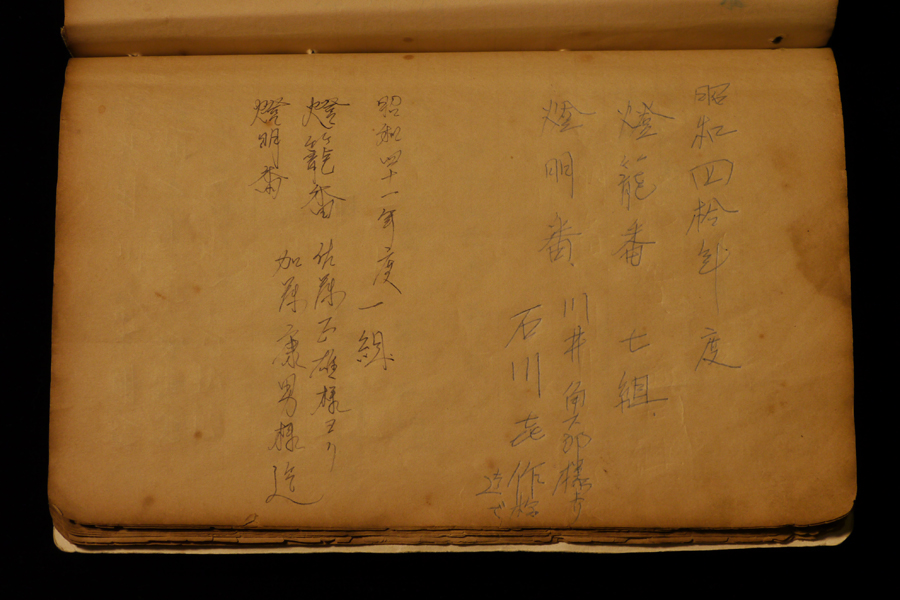 昭和四拾年度
燈籠番 七組
燈明番 川井 様ヨリ
石川 作様
迄で
昭和四十一年度 一組
燈籠番 佐藤正雄様ヨリ
燈明番 加藤康男様迄